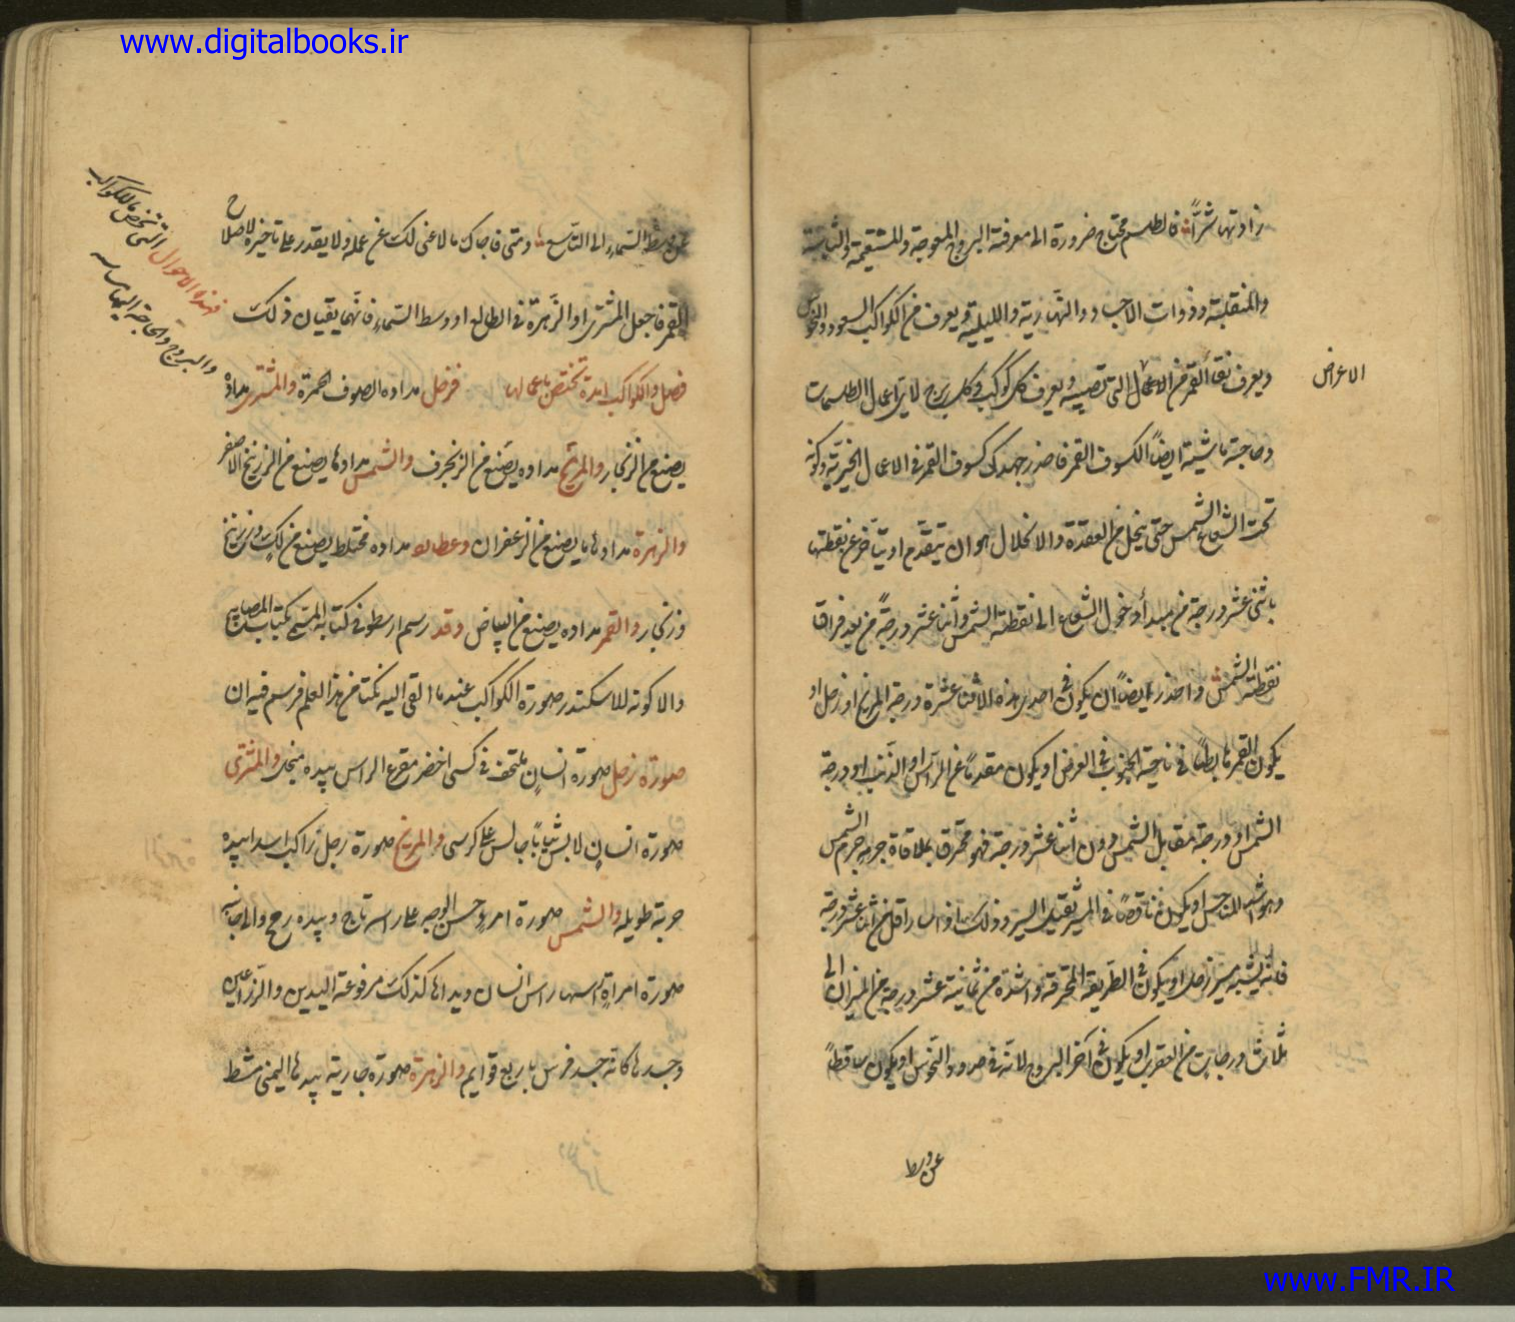 www.digitalbooks.ir
زادتها شرًّا فالطلسم محتاج ضرورة الى معرفة البروج المعوجة والمستقيمة والثابتة
والمنقلبة وذوات الاجساد والنهارية والليلية ويعرف من الكواكب السعود والنحوس
ويعرف نقأ القمر من الاعمال التى تصيبه ويعرف كل كوكب وكل برج لاى اعمال الطلسمات
الاعراض
وحاجته ماشية ايضاً الكسوف القمر فاحذر جهدك كسوف القمر فى الاعمال الخيرية وكونه
تحت الشعاع الشمس حتى ينحل من العقدة والانحلال هو ان يتقدم او يتأخر عن نقطتها
باثنى عشر درجة من مبدأ دخول الشعاع الى نقطة الشمس واثنا عشر درجةً من بعد فراق
نقطة الشمس واحذر ايضاً ان يكون فى احدى هذه الاثنتا عشرة درجة المريخ او زحل او
يكون القمر هابطاً فى ناحية الجنوب فى العرض او يكون مقدماً عن الرأس او الذنب او درجة
الشمس او درجة مقابل الشمس دون اثنا عشر درجة فهو محترق بملاقاة جرمه جرم الشمس
وهو اشد المناحس او يكون ناقصاً فى المسير ثقيل السير وذلك اذا سار اقل من اثنا عشر درجة
فانه يشبه مسير زحل او يكون فى الطريقة المحترقة واشده من ثمانية عشر درجة من الميزان الى
ثلاث درجات من العقرب او يكون فى آخر البروج لانه فى حدود النحوس او يكون ساقطاً
عن وسط
عن وسط السماء الى التاسع ومتى فاجاك ما لا غنى لك عن عمله ولا يقدر على تاخيره لاصلاح
القمر فاجعل المشترى او الزهرة فى الطالع او وسط السماء فانهما يقيان ذلك
فهذه الاحوال التى تختص بالكواكب
والبروج والحاجة اليها ماسه
فصل والكواكب امدة تختص باعمالها فزحل مداده الصوف المحرقة والمشترى مداده
يصنع من الزنجار والمريخ مداده يصنع من الزنجفر والشمس مدادها يصنع من الزرنيخ الاصفر
والزهرة مدادها يصنع من الزعفران وعطارد مداده مختلط يصنع من لك وزرنيخ
وزنجار والقمر مداده يصنع من البياض وقد رسم ارسطو فى كتابه المسمى بكتاب المصابيح
والاكوته للاسكندر صورة الكواكب عندما القى اليه نكتا من هذا العلم فرسم فيه ان
صورة زحل صورة انسان ملتحف فى كسى اخضر مقرع الراس بيده منجل والمشترى
صورة انسان لابس ثياباً جالس على كرسى والمريخ صورة رجل راكب اسدا بيده
حربة طويله والشمس صورة امرء حسن الوجه على راسه تاج وبيده رمح والى جانبه
صورة امراة راسها راس انسان ويداها كذلك مرفوعة اليدين والذراعين
وجسدها كانه جسد فرس باربع قوايم والزهرة صورة جارية بيدها اليمنى مشط
www.FMR.IR